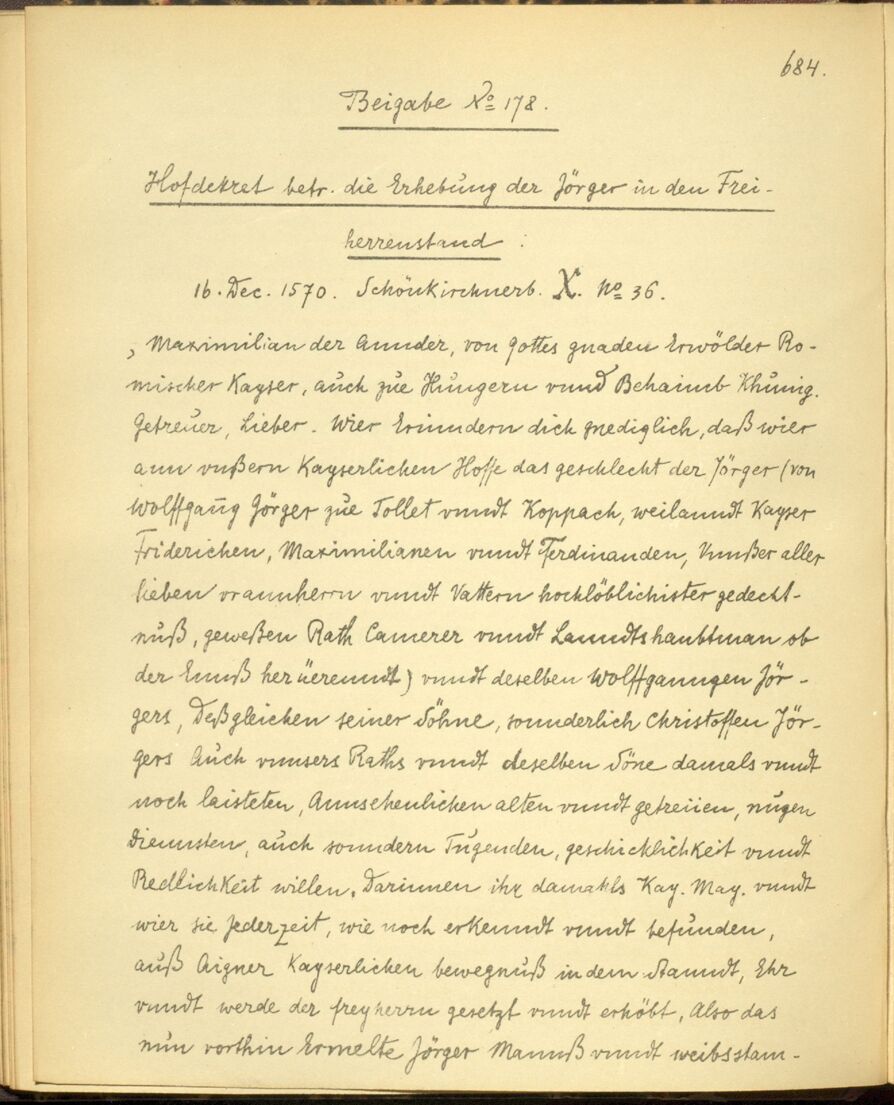 684.
Beigabe No 178.
Hofdekret betr. die Erhebung der Jörger in den Frei-
herrenstand :
16. Dec. 1570. Schönkirchnerb. X. No 36.
, Maximilian der Annder, von gottes gnaden Erwölder Ro-
mischer Kayser, auch zue Hungern vnnd Behaimb Khunig.
Getreuer, Lieber. Wier Erinndern dich gnediglich, daß wier
ann vnßern Kayserlichen Hoffe das geschlecht der Jörger (von
Wolffgang Görger zue Tollet vnndt Koppach, weilanndt Kayser
Friderichen, Maximilianen vnndt Ferdinanden, Vnnßer aller
lieben vrannherrn vnndt Vattern hochlöblichister gedecht-
nuß, geweßen Rath Camerer vnndt Lanndtshaubtman ob
der Ennß her üerenndt) vnndt deselben Wolffganngen Jör-
gers, Deßgleichen seiner Söhne, sonnderlich Christoffen Jör-
gers Auch vnnsers Raths vnndt deselben Söne damals vnndt
noch laisteten, Annsehenlichen alten vnndt getreüen, nugen
Diennsten, auch sonndern Tugenden, geschicklichkeit vnndt
Redlichkeit willen, Darinnen ihr damahls Kay. May. vnndt
wier sie Jederzeit, wie noch erkenndt vnndt befunden,
auß Aigner Kayserlichen bewegnuß in dem Stanndt, Ehr
vnndt werde der freyherrn gesetzt vnndt erhöbt, Also das
nun vorthin Ermelte Jörger Mannß vnndt weibsstam-